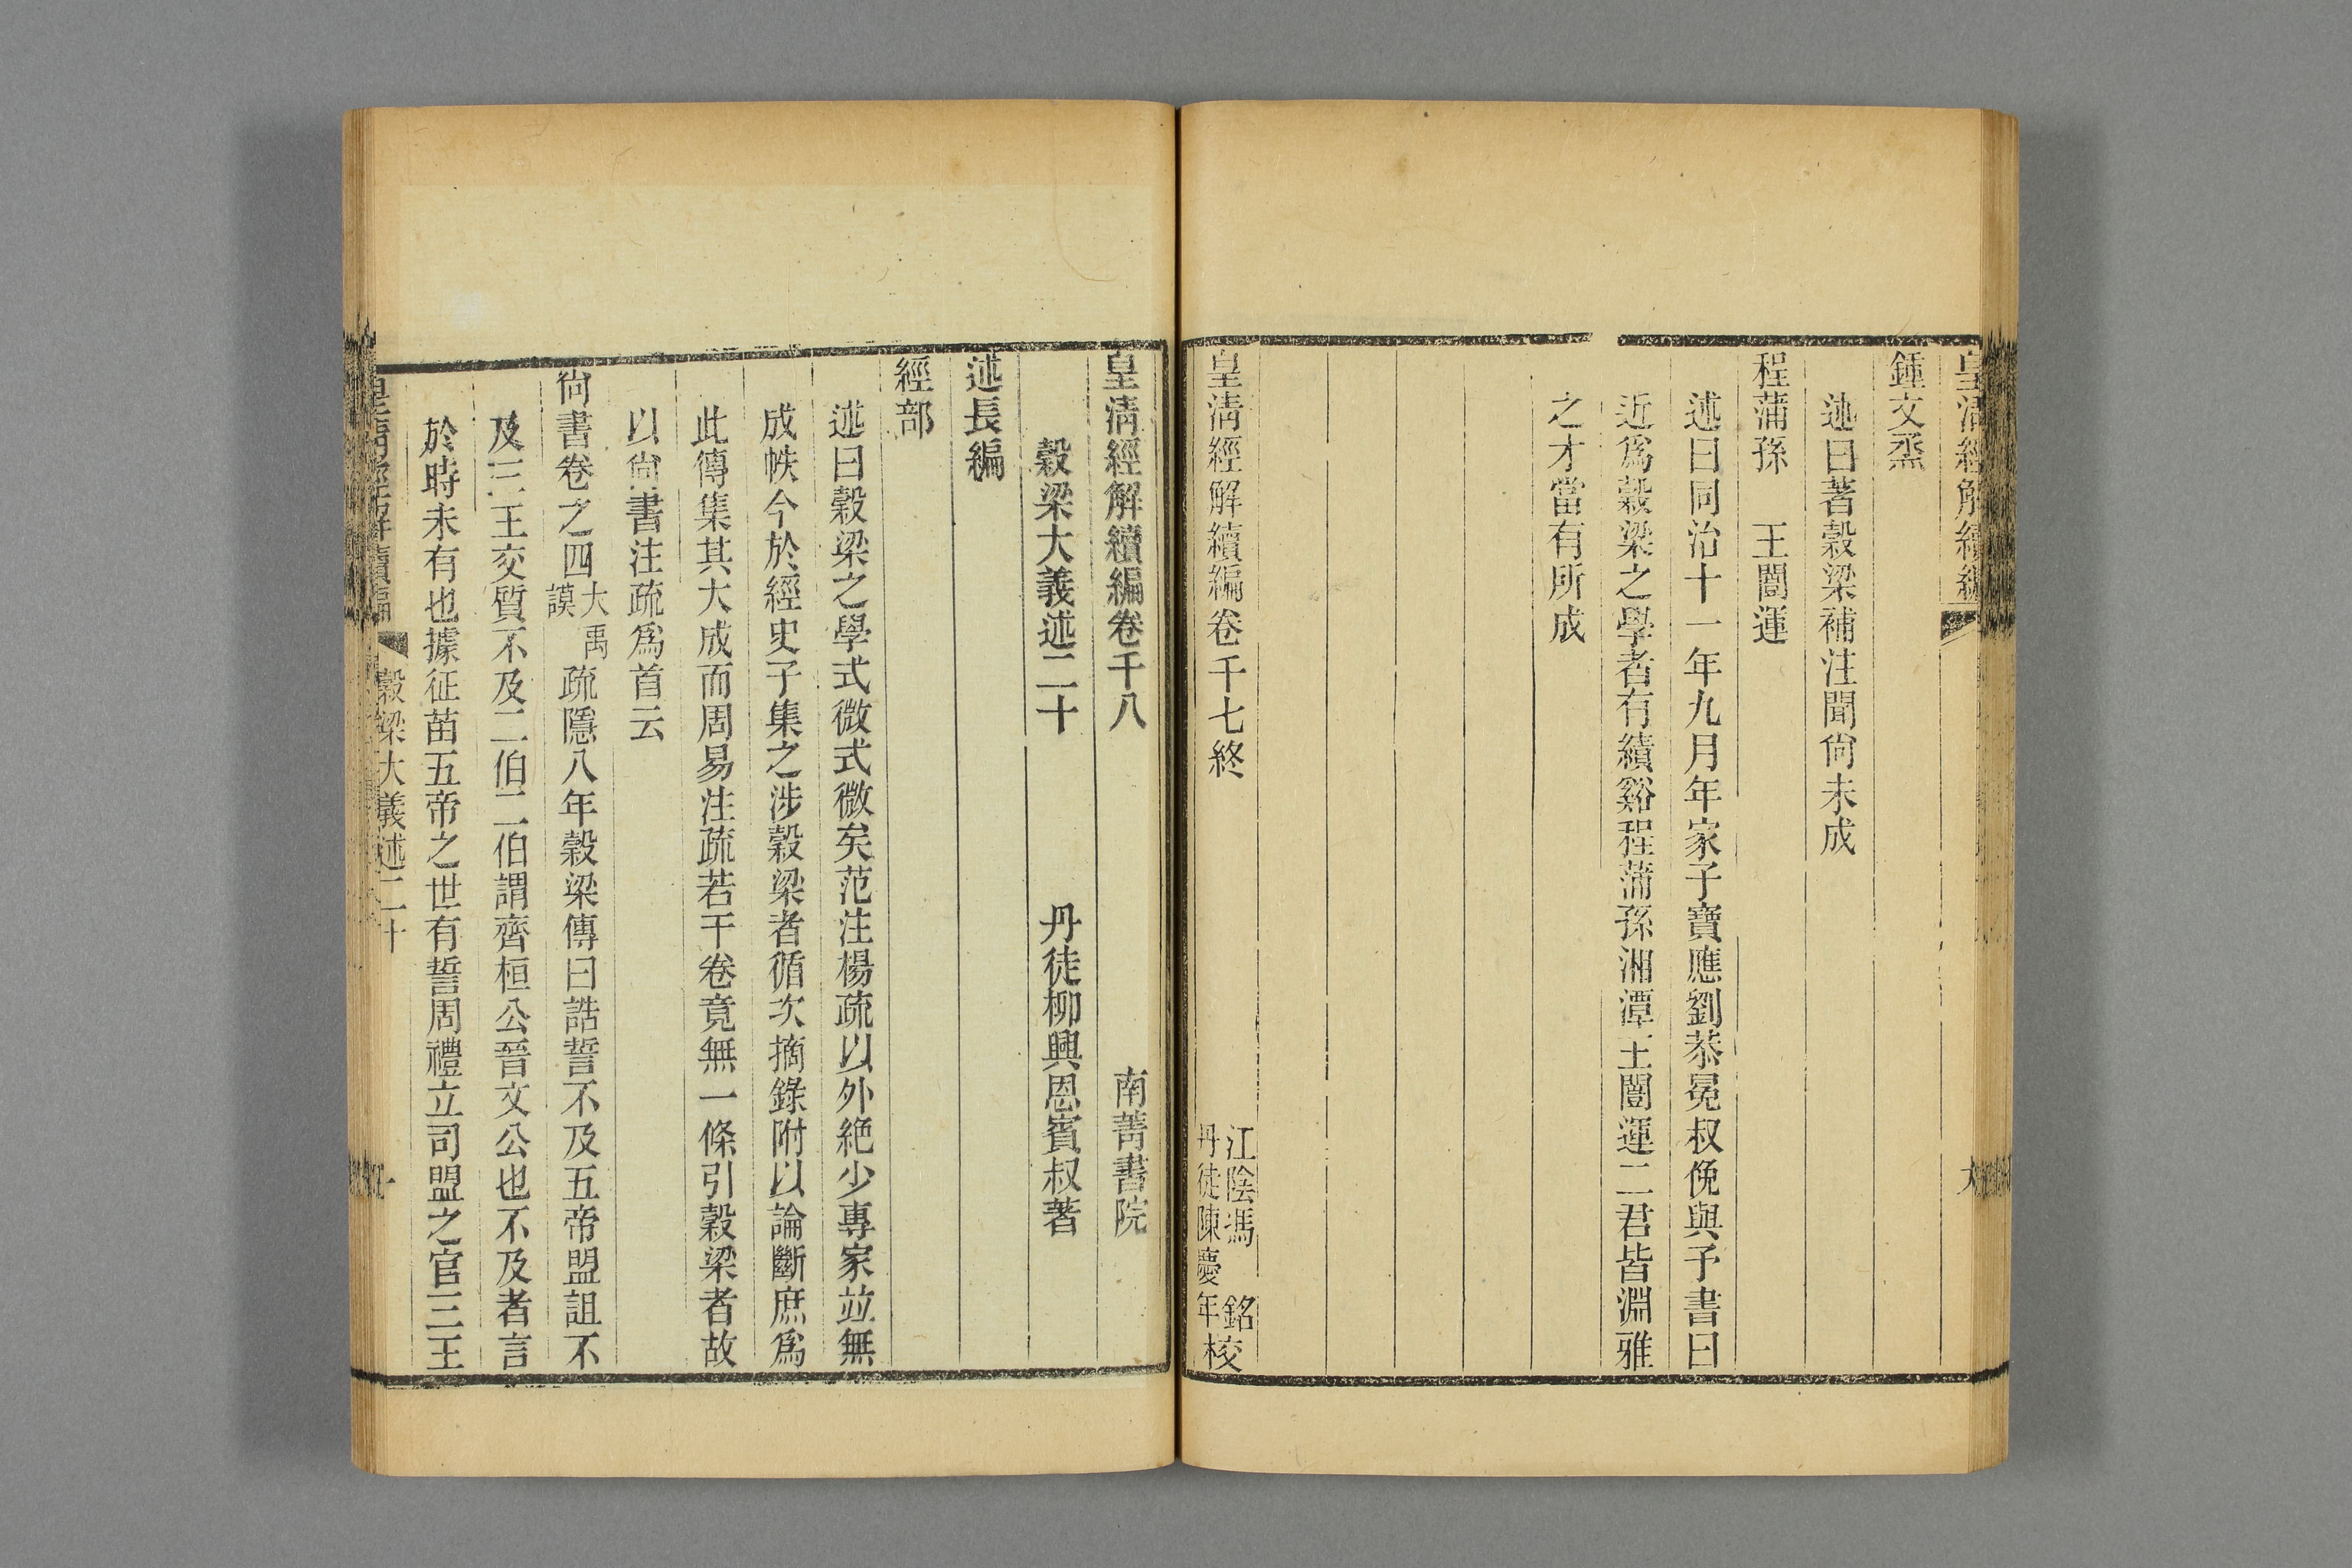 皇清經解續編
鍾文烝
述曰著穀梁補注聞尙未成
程蒲孫　王闓運
述曰同治十一年九月年家子寶應劉恭冕叔俛與予書曰
近爲穀梁之學者有績谿程蒲孫湘潭王闓運二君皆淵雅
之才當有所成
皇淸經解續編卷千七終
江陰馮　銘
丹徒陳慶年校
皇淸經解續編卷千八　南菁書院
穀梁大義述二十　丹徒柳興恩賓叔著
述長編
經部
述曰穀梁之學式微式微矣范注楊疏以外絶少專家竝無
成帙今於經史子集之涉穀梁者循次摘錄附以論斷庶爲
此傳集其大成而周易注疏若干卷竟無一條引穀梁者故
以尙書注疏爲首云
尙書卷之四大禹謨疏隱八年穀梁傳曰誥誓不及五帝盟詛不
及三王交質不及二伯二伯謂齊桓公晉文公也不及者言
於時未有也據征苗五帝之世有誓周禮立司盟之官三王
皇淸經解續編　穀梁大義述二十　一